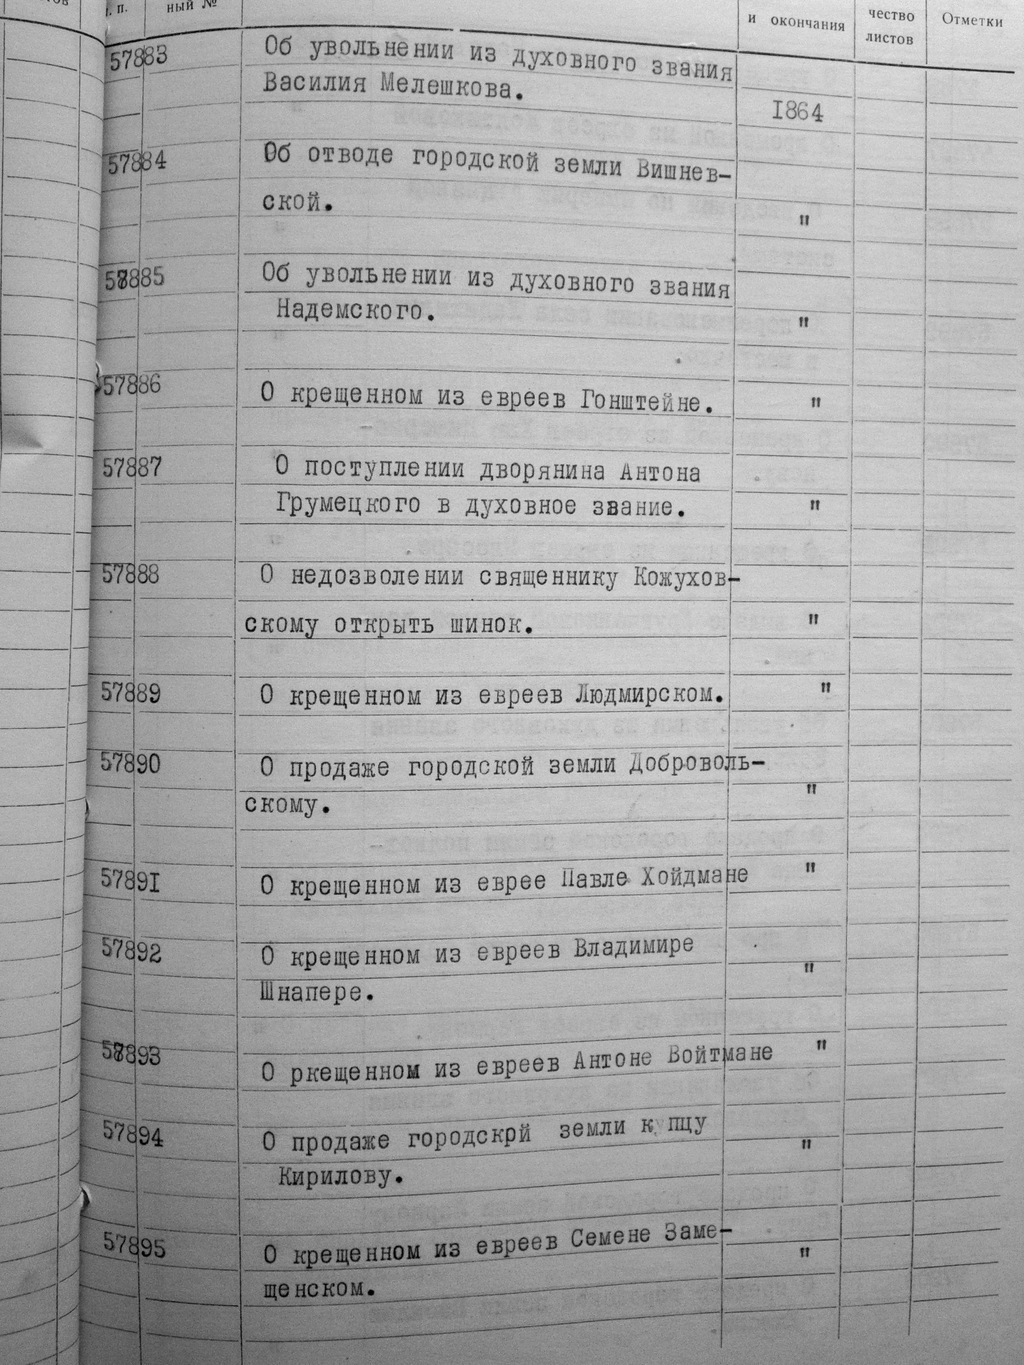 п. п.
ный №
и окончания
чество
листов
Отметки
57883 Об увольнении из духовного звания
Василия Мелешкова.
1864
57884 Об отводе городской земли Вишнев-
ской. "
57885 Об увольнении из духовного звания
Надемского. "
57886 О крещенном из евреев Гонштейне. "
57887 О поступлении дворянина Антона
Грумецкого в духовное звание. "
57888 О недозволении священнику Кожухов-
скому открыть шинок. "
57889 О крещенном из евреев Людмирском. "
57890 О продаже городской земли Доброволь-
скому. "
57891 О крещенном из еврее Павле Хойдмане "
57892 О крещенном из евреев Владимире
Шнапере. "
57893 О ркещенном из евреев Антоне Войтмане "
57894 О продаже городскрй земли купцу
Кирилову. "
57895 О крещенном из евреев Семене Заме-
щенском. "